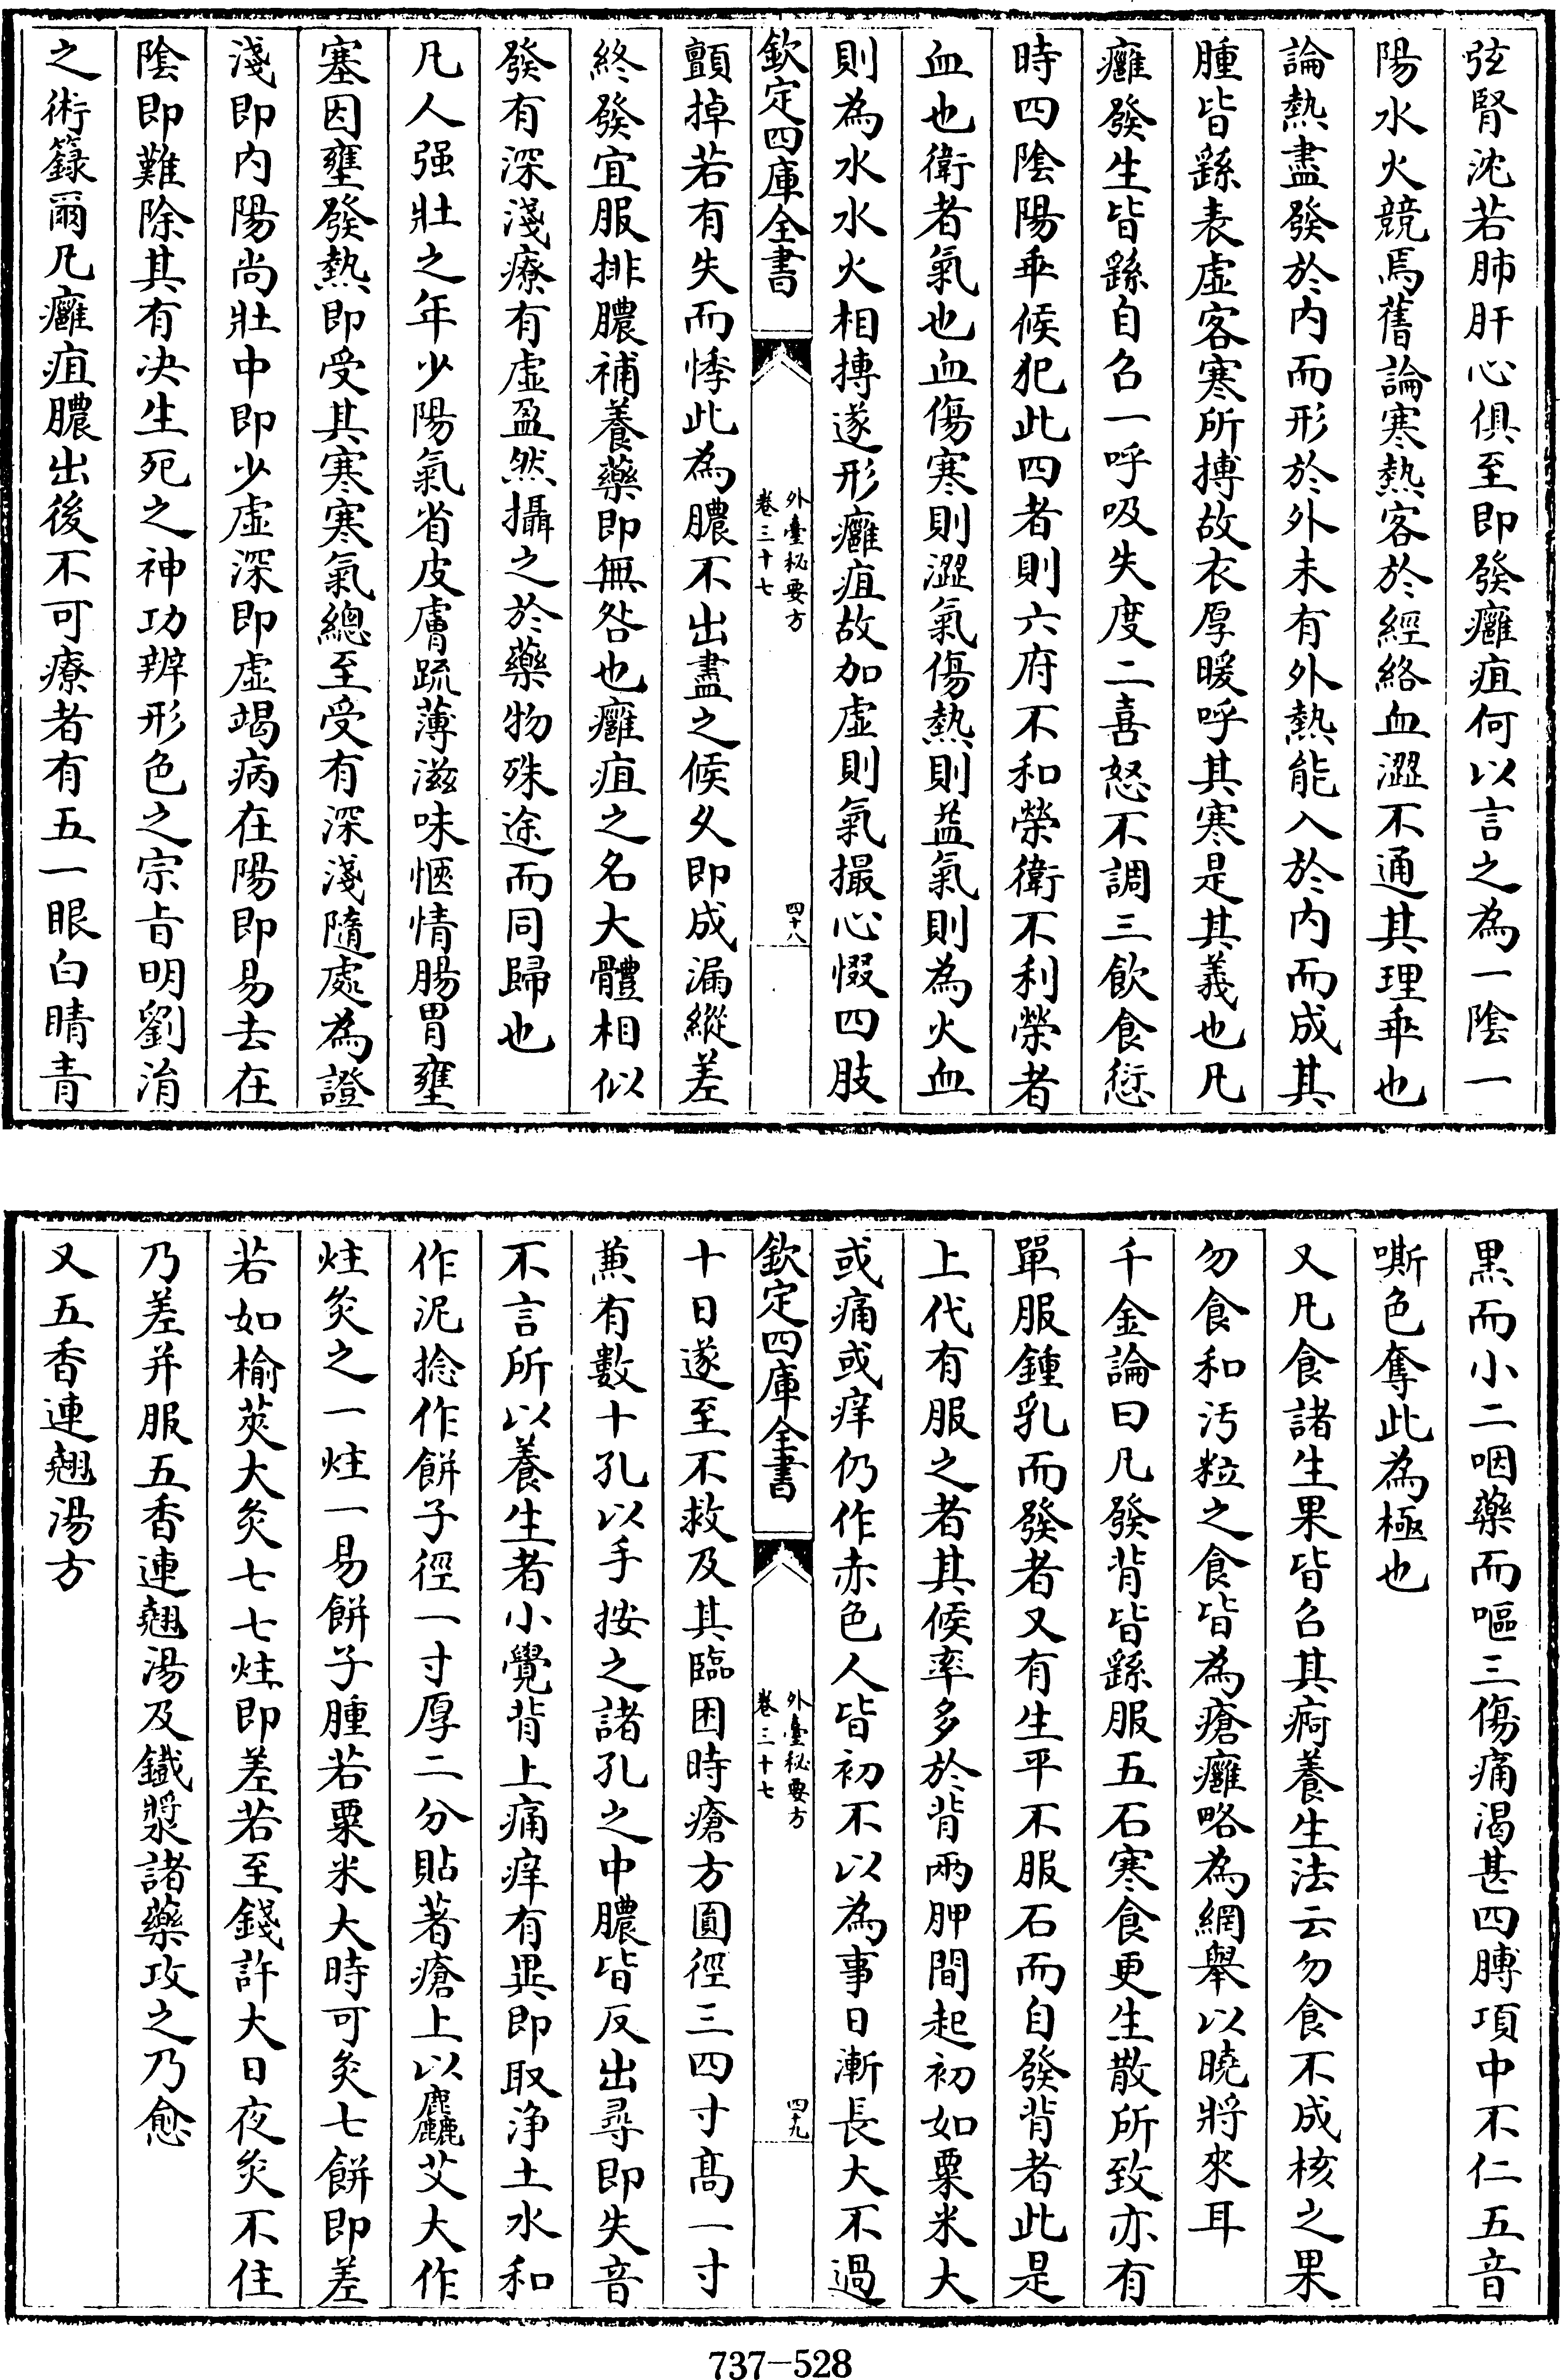 弦腎沈若肺肝心俱至即發癰疽何以言之為一陰一
陽水火競焉舊論寒熱客於經絡血澀不通其理乖也
論熱盡發於内而形於外未有外熱能入於内而成其
腫皆繇表虚客寒所搏故衣厚暖呼其寒是其義也凡
癰發生皆繇自召一呼吸失度二喜怒不調三飲食愆
時四陰陽乖候犯此四者則六府不和榮衛不利榮者
血也衛者氣也血傷寒則澀氣傷熱則益氣則為火血
則為水水火相搏遂形癰疽故加虚則氣撮心惙四肢
欽定四庫全書
外臺秘要方
卷三十七
四十八
顫掉若有失而悸此為膿不出盡之候久即成漏縱差
終發宜服排膿補養藥即無咎也癰疽之名大體相似
發有深淺療有虚盈然攝之於藥物殊途而同歸也
凡人强壯之年少陽氣省皮膚疏薄滋味愜情腸胃壅
塞因壅發熱即受其寒寒氣總至受有深淺隨處為證
淺即内陽尚壯中即少虚深即虚竭病在陽即易去在
陰即難除其有决生死之神功辨形色之宗㫖明劉涓
之術籙爾凡癰疽膿出後不可療者有五一眼白睛青
黒而小二咽藥而嘔三傷痛渴甚四膊項中不仁五音
嘶色奪此為極也
又凡食諸生果皆召其疴養生法云勿食不成核之果
勿食和汚粒之食皆為瘡癰略為網舉以曉將來耳
千金論曰凡發背皆繇服五石寒食更生散所致亦有
單服鍾乳而發者又有生平不服石而自發背者此是
上代有服之者其候率多於背兩胛間起初如粟米大
或痛或痒仍作赤色人皆初不以為事日漸長大不過
欽定四庫全書
外臺秘要方
卷三十七
四十九
十日遂至不救及其臨困時瘡方圓徑三四寸髙一寸
兼有數十孔以手按之諸孔之中膿皆反出尋即失音
不言所以養生者小覺背上痛痒有異即取浄土水和
作泥捻作餅子徑一寸厚二分貼著瘡上以麤艾大作
炷灸之一炷一易餅子腫若粟米大時可灸七餅即差
若如榆莢大灸七七炷即差若至錢許大日夜灸不住
乃差并服五香連翹湯及鐵漿諸藥攻之乃愈
又五香連翹湯方
737-528